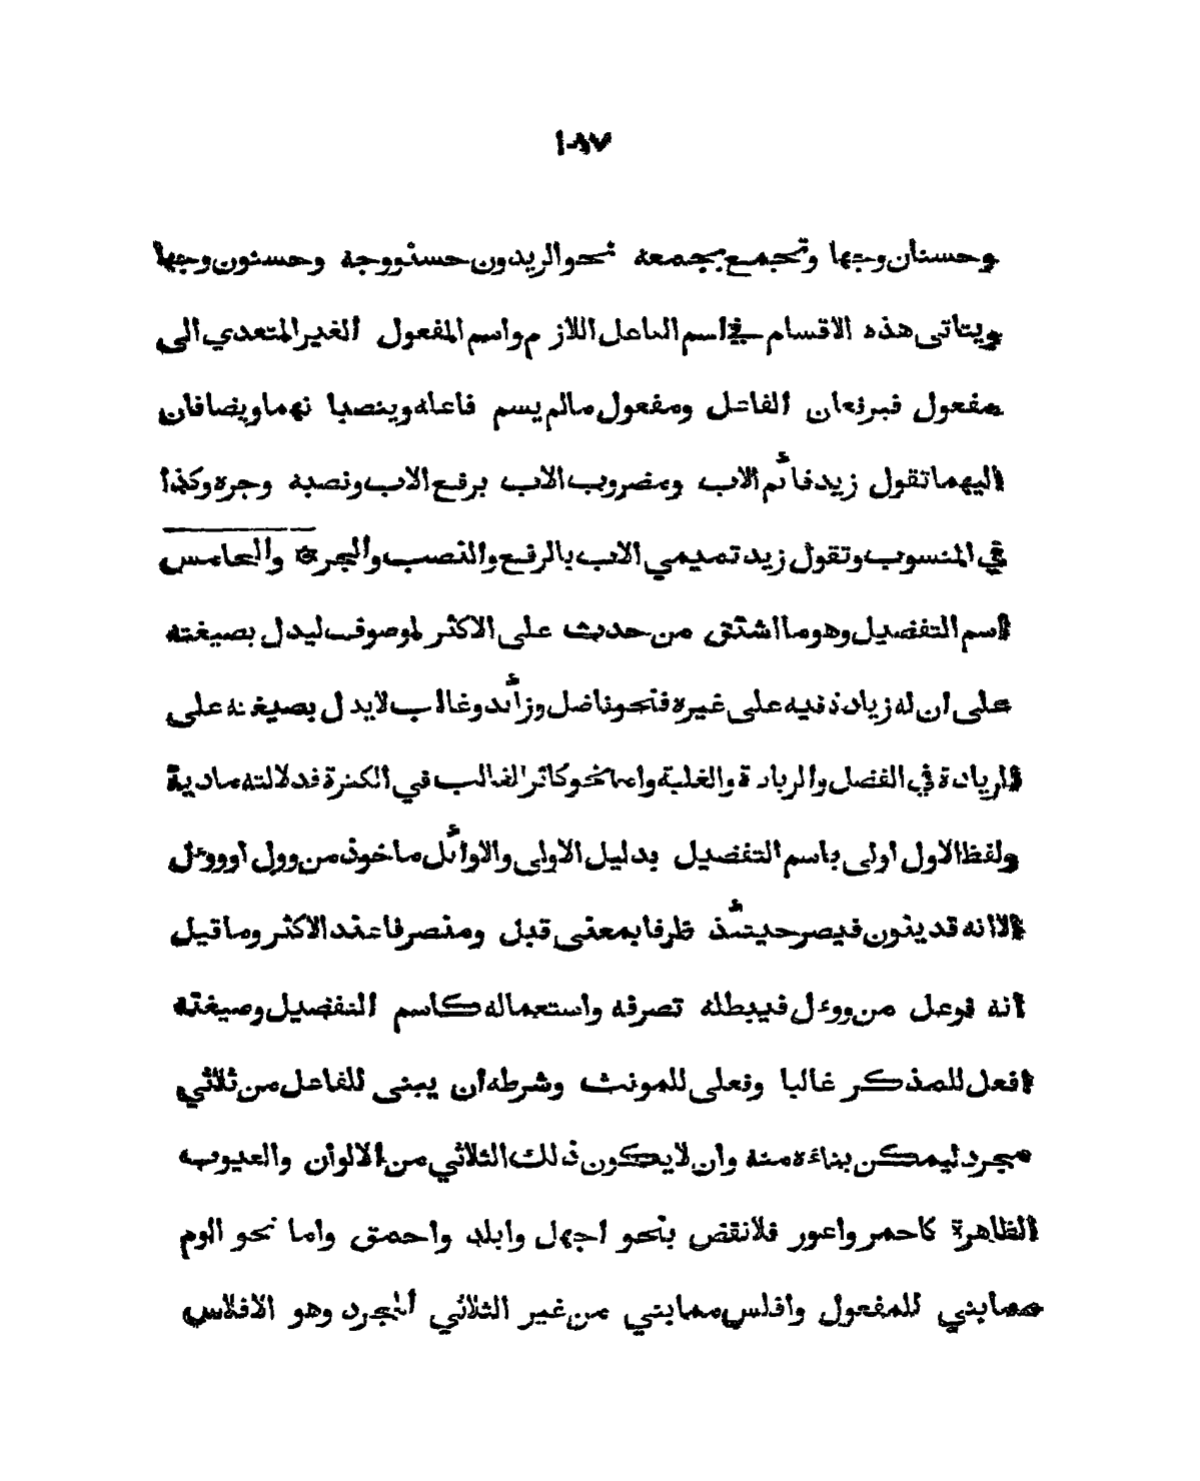 ١٠٨٧
وحسنان وجها وتجمع بجمعة نحو الزيدون حسنو وجة وحسنون وجها
ويتاتى هذه الاقسام في اسم الفاعل اللازم واسم المفعول الغير المتعدي الى
مفعول فيرفعان الفاعل ومفعول مالم يسم فاعله وينصبا نهما ويضافان
اليهما تقول زيد قائم الاب ومضروب الاب برفع الاب ونصبة وجره وكذا
في المنسوب وتقول زيد تميمي الاب بالرفع والنصب والجر * والخامس
اسم التفضيل وهو ما اشتق من حدث على الاكثر لموصوف ليدل بصيغته
على ان له زيادة فيه على غيره فنحو فاضل وزائد وغالب لا يدل بصيغته على
الزيادة في الفضل والزيادة والغلبة واما نحو كاثر الغالب في الكثرة فدلالته مادية
ولفظ الاول اولى باسم التفضيل بدليل الاولى والاوائل ماخوذ من وول او ووءل
الا انه قد ينون فيصير حينئذ ظرفا بمعنى قبل ومنصرفا عند الاكثر وما قيل
انه فوعل من ووءل فيبطله تصرفه واستعماله كاسم التفضيل وصيغته
افعل للمذكر غالبا وفعلى للمونث وشرطه ان يبنى للفاعل من ثلاثي
مجرد ليمكن بناءه منة وان لا يكون ذلك الثلاثي من الالوان والعيوب
الظاهرة كاحمر واعور فلا نقض بنحو اجهل وابلد واحمق واما نحو الوم
مما بني للمفعول وافلس مما بني من غير الثلاثي المجرد وهو الافلاس